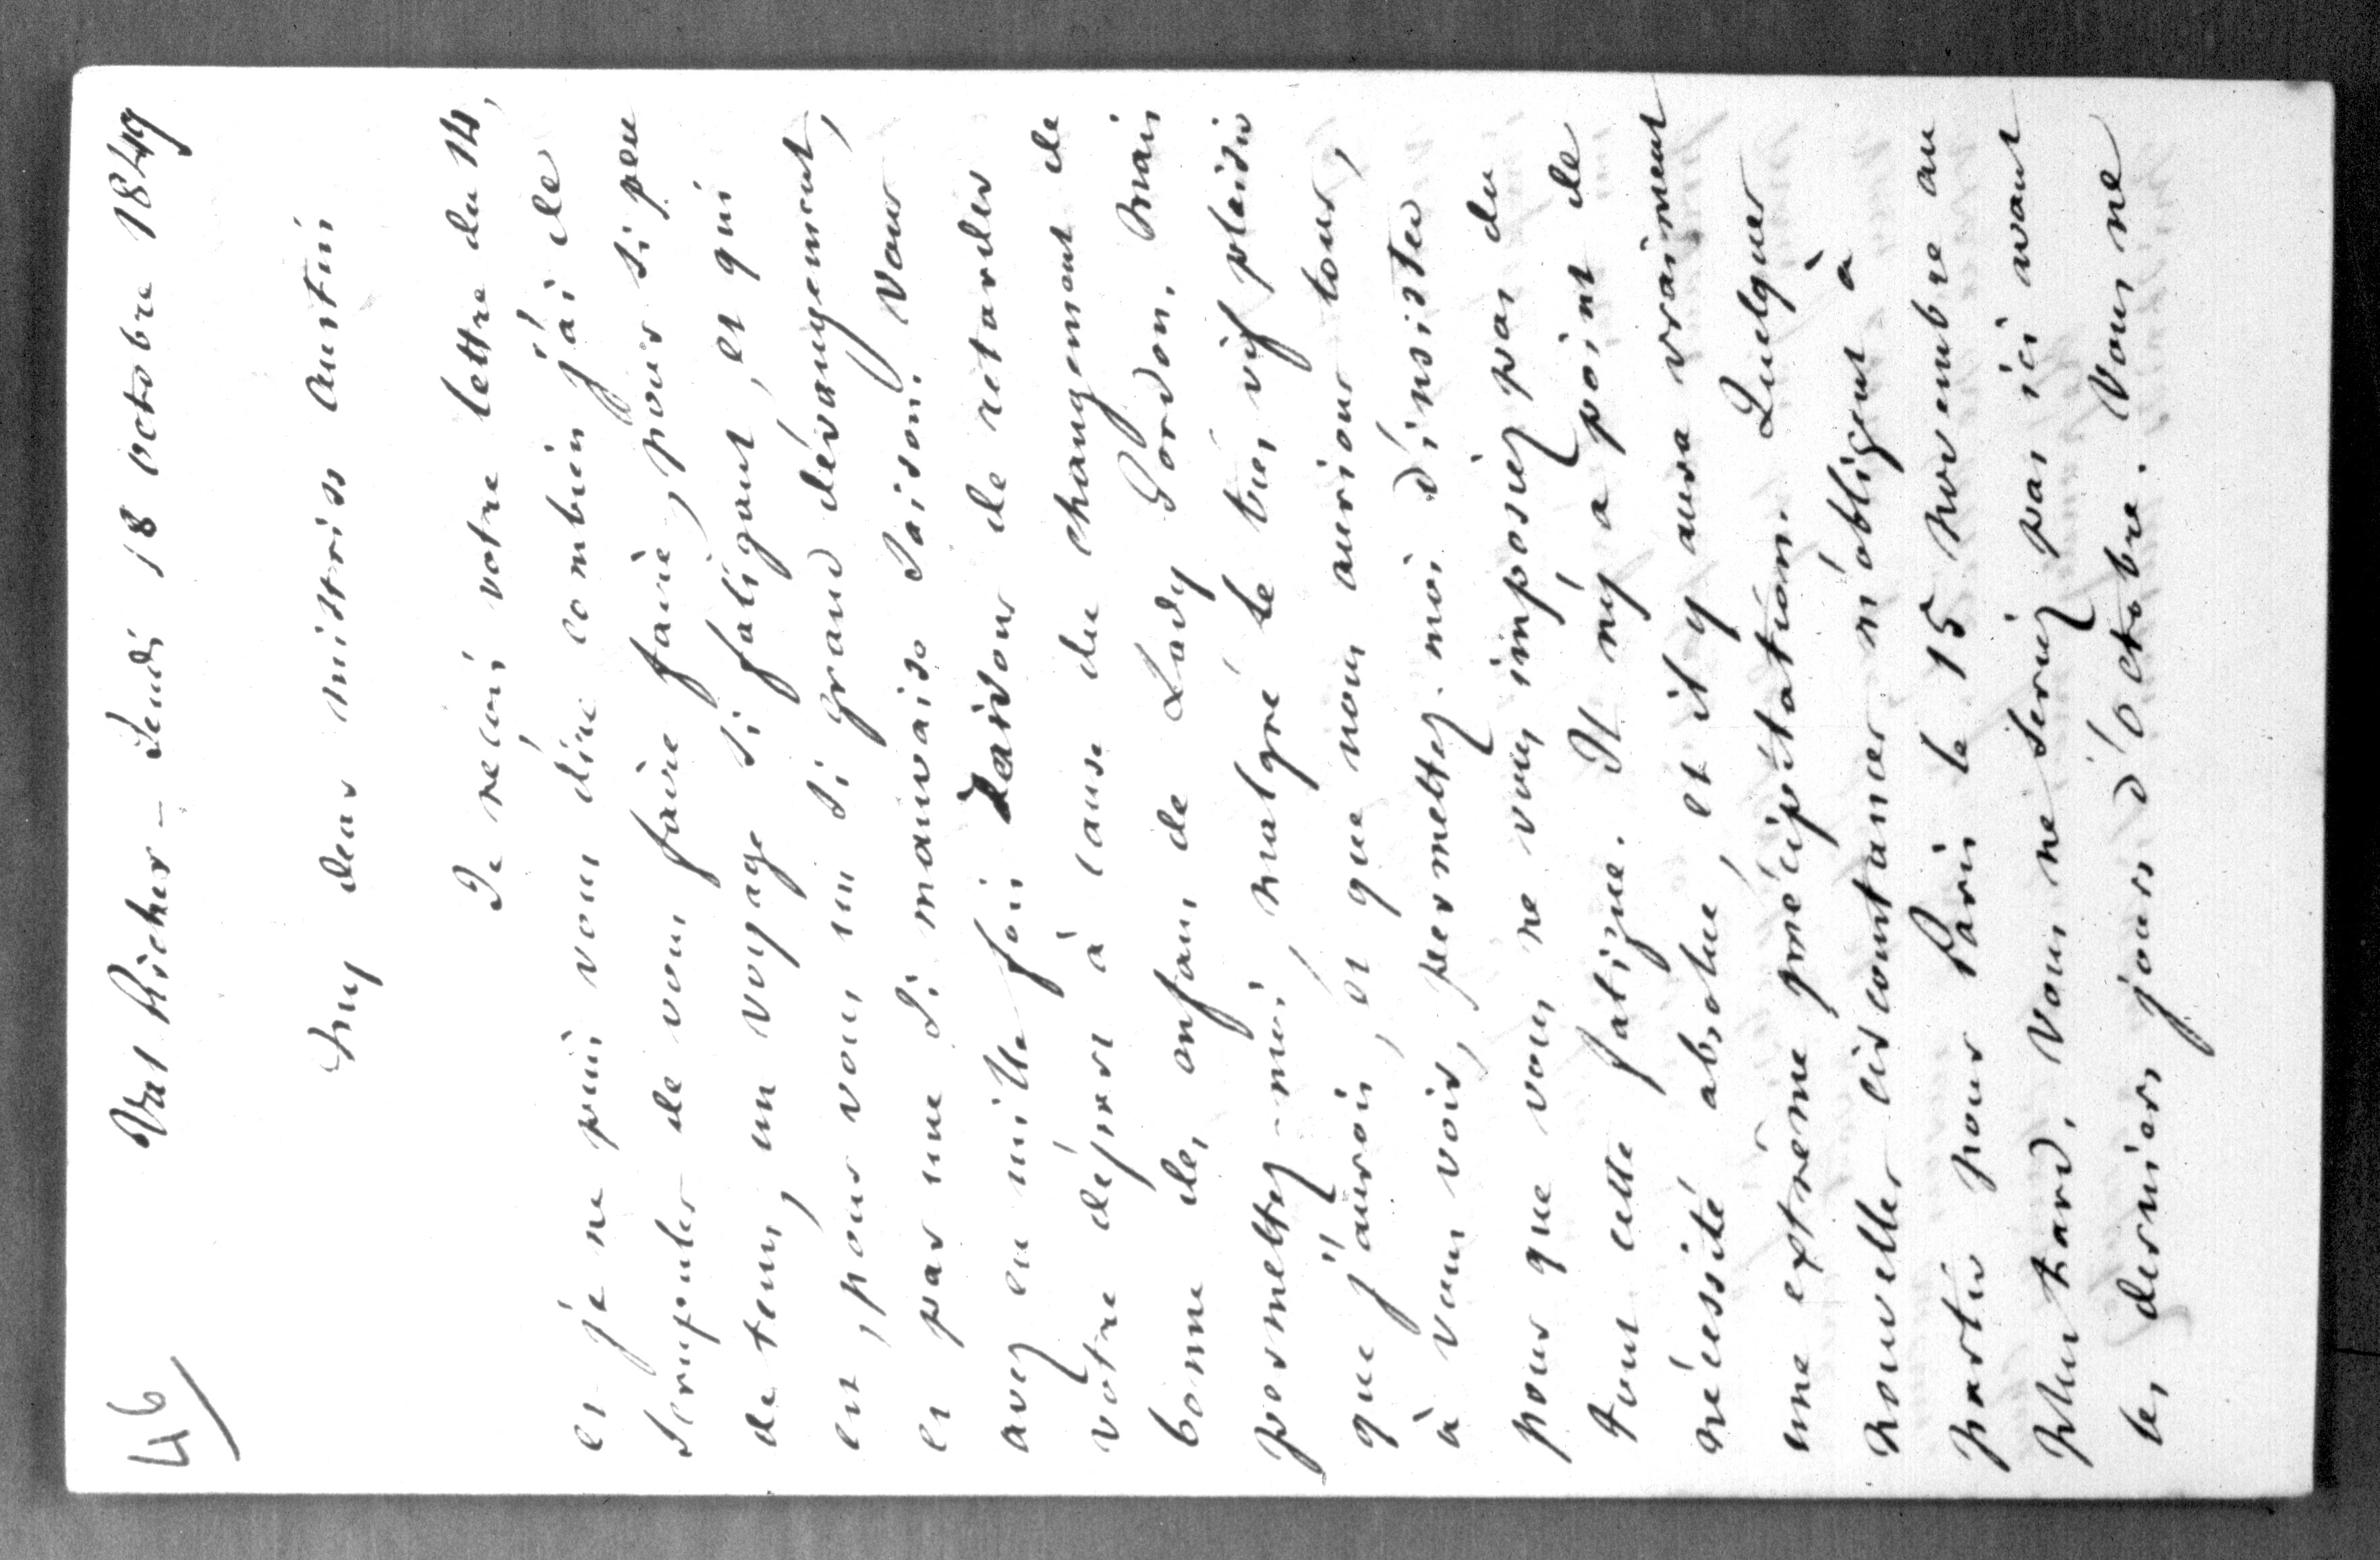 46
Val Richer - Jeudi 18 octobre 1849
My dear mistriss Austin
Je reçois votre lettre du 14,
et je ne puis vous dire combien j'ai de
scrupules de vous faire faire, pour si peu
de tems, un voyage si fatigant, et qui
est, pour vous un si grand dérangement,
et par une si mauvaise saison. Vous
avez eu mille fois raison de retarder
votre départ à cause du changement de
bonne des enfans de Lady Gordon. Mais
permettez-moi, malgré le très vif plaisir
que j'aurois, et que nous aurions tous,
à vous voir, permettez-moi d'insister
pour que vous ne vous imposiez pas du
tout cette fatigue. Il n'y a point de
nécessité absolue, et il y aura vraiment
une extrême précipitation. Quelques
nouvelles circonstances m'obligent à
partir pour Paris le 15 novembre au
plus tard. Vous ne seriez pas ici avant
les derniers jours d'octobre. Vous ne